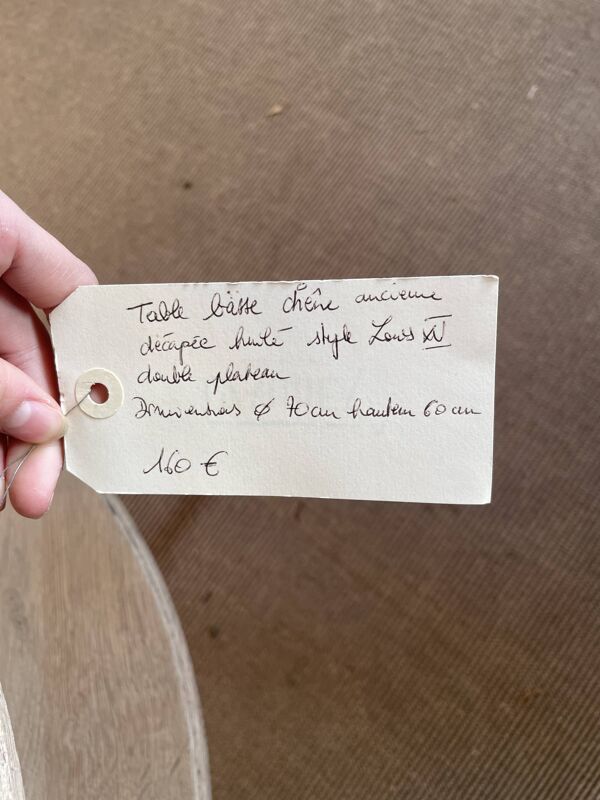 Table bâsse chêne ancienne
décapée huilé style Louis XV
double plateau
Dimensions ø 70 cm hauteur 60 cm
160 €